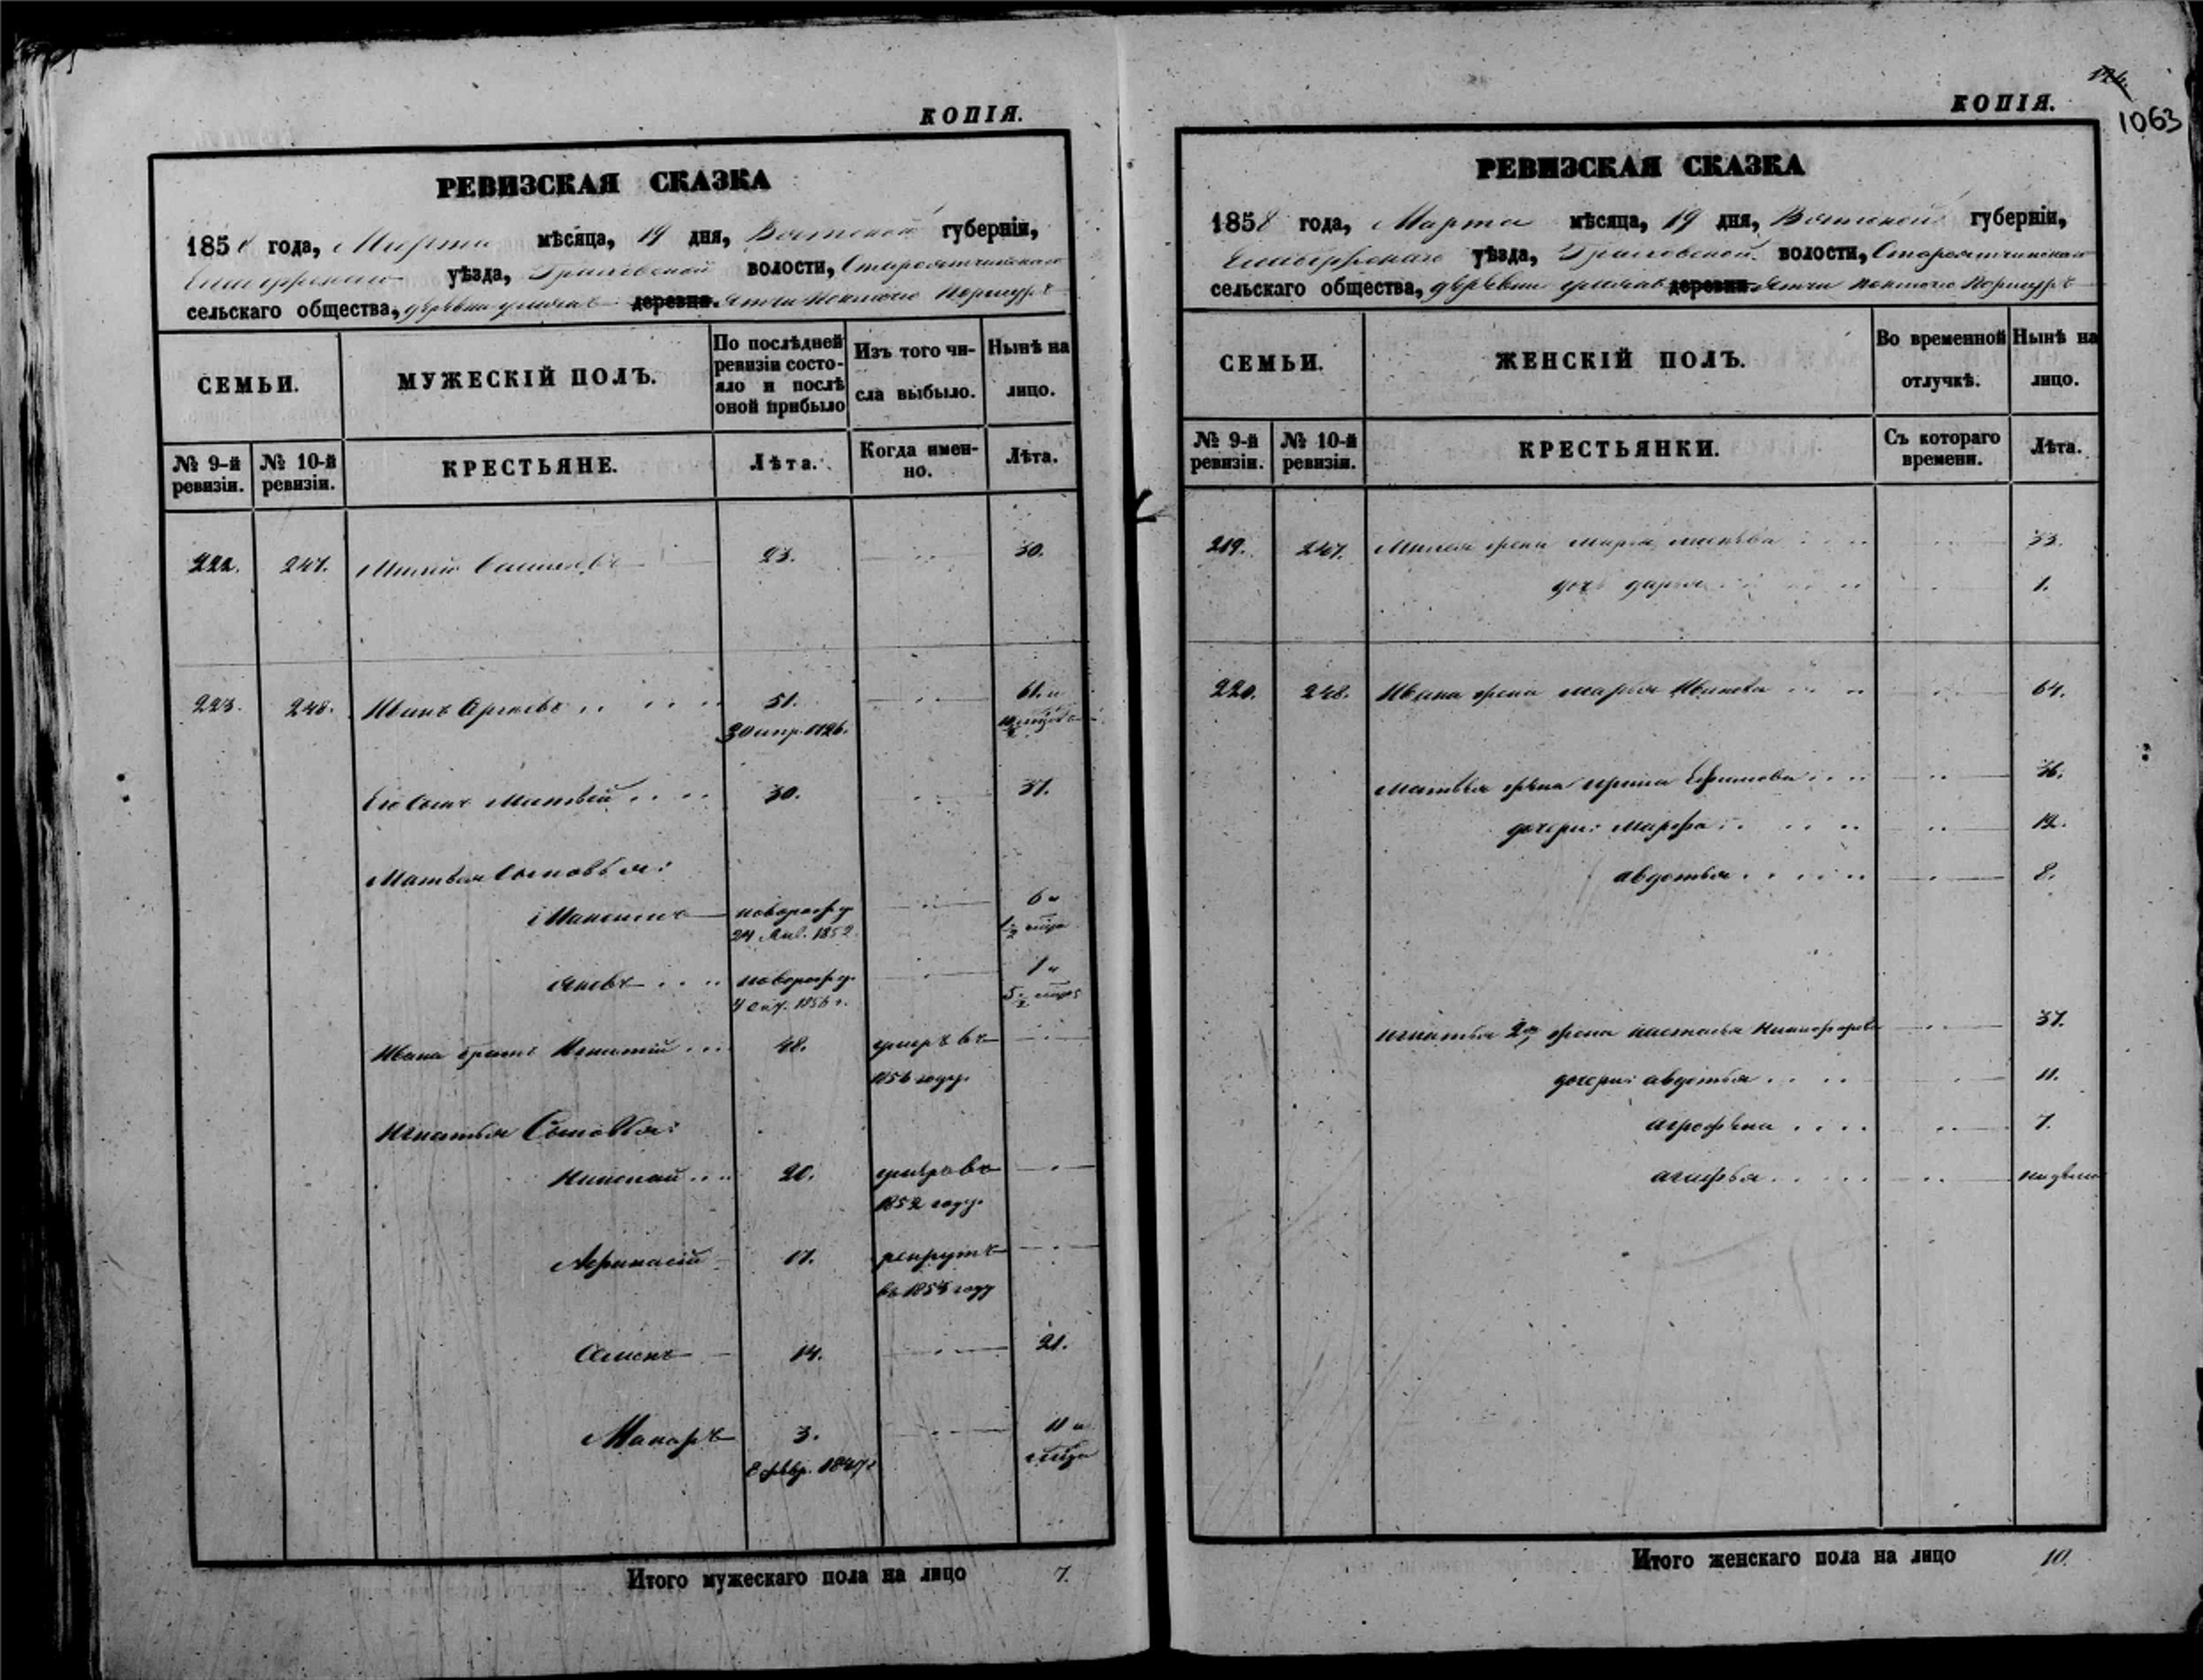 КОПІЯ.
РЕВИЗСКАЯ СКАЗКА
1858 года, Марта мѣсяца, 19 дня, Вятской губерніи,
Елабужскаго уѣзда, Граховской волости,
сельскаго общества, деревня.
СЕМЬИ.
МУЖЕСКІЙ ПОЛЪ.
По послѣдней ревизіи состо-
яло и послѣ
оной прибыло
Изъ того чи-
сла выбыло.
Нынѣ на
лицо.
№ 9-й
ревизіи.
№ 10-й
ревизіи.
КРЕСТЬЯНЕ.
Лѣта.
Когда имен-
но.
Лѣта.
222. 247. 23. 30.
223. 248. Иванъ 51. 61. и
30 апр. 1126.
Его сынъ Матвѣй 30. 37.
Матвѣя Сыновья:
Максимъ новорожд. 6 и
24 Янв. 1852. 1 1/2 мѣся
Яковъ новорожд. 1 и
4 Окт. 1856 г. 5 1/2 мѣся
Ивана братъ Игнатій 48. умеръ въ
1856 году.
Игнатья Сыновья:
Николай 20. умеръ въ
1852 году.
Афанасій 17. рекрутъ
въ 1854 году
Семенъ 14. 21.
Макаръ 3. 11 и
8 февр. 1847 г мѣся
Итого мужескаго пола на лицо 7.
КОПІЯ.
1063
РЕВИЗСКАЯ СКАЗКА
1858 года, Марта мѣсяца, 19 дня, Вятской губерніи,
Елабужскаго уѣзда, Граховской волости,
сельскаго общества, деревни деревня.
СЕМЬИ.
ЖЕНСКІЙ ПОЛЪ.
Во временной
отлучкѣ.
Нынѣ на
лицо.
№ 9-й
ревизіи.
№ 10-й
ревизіи.
КРЕСТЬЯНКИ.
Съ котораго
времени.
Лѣта.
219. 247. жена Марья 33.
дочь Дарья 1.
220. 248. Ивана жена Марья Иванова 64.
Матвѣя жена Ирина Ефимова 36.
дочери: Марфа 12.
Авдотья 8.
Игнатья 2я жена Настасья Никифорова 37.
дочери: Авдотья 11.
Аграфена 7.
Агафья недѣля
Итого женскаго пола на лицо 10.